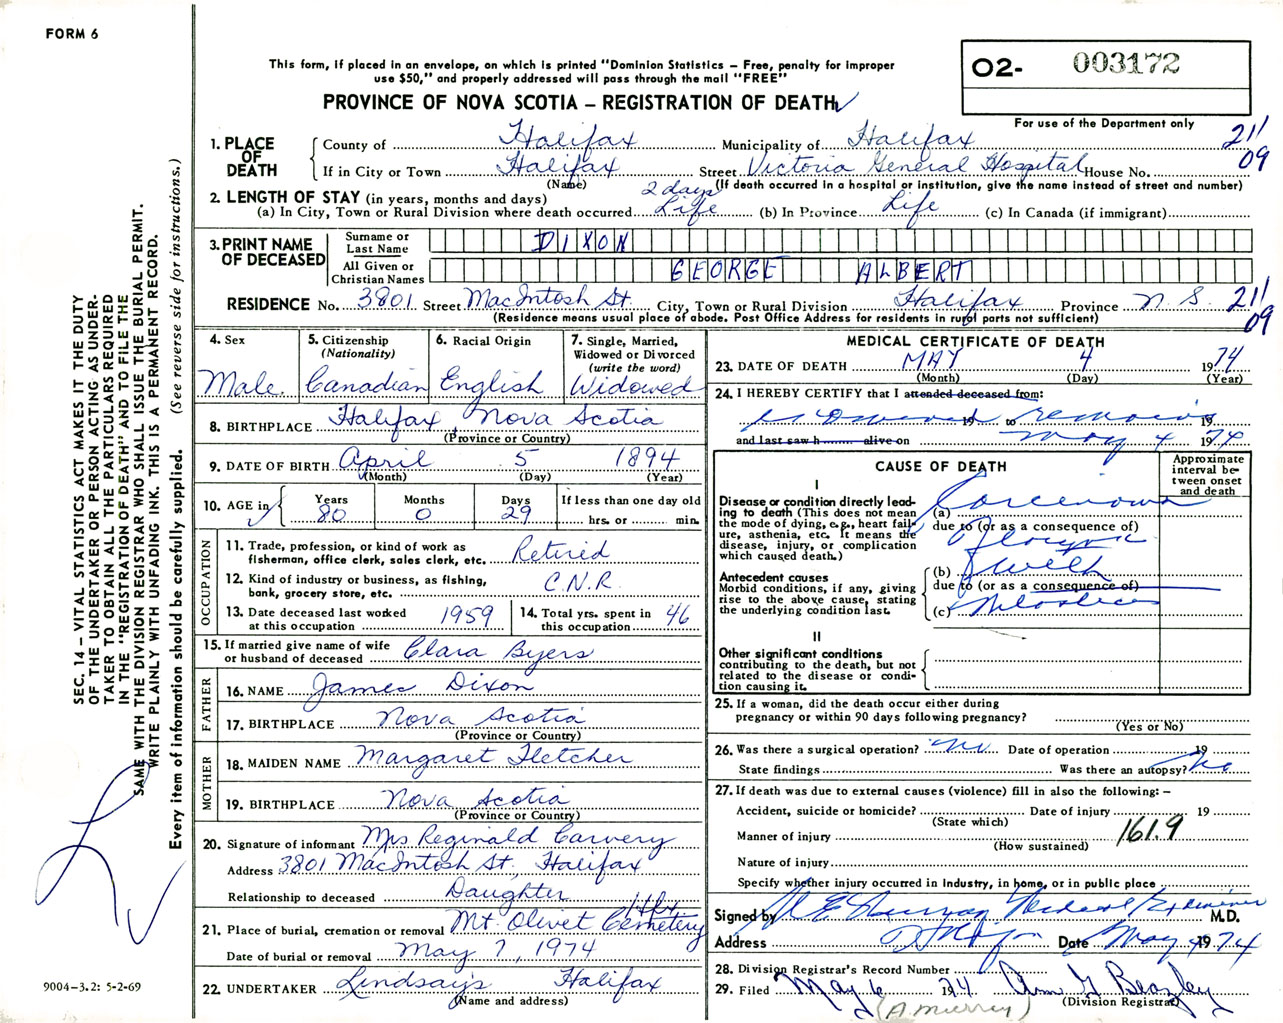 FORM 6
This form, if placed in an envelope, on which is printed "Dominion Statistics – Free, penalty for improper
use $50," and properly addressed will pass through the mail "FREE"
PROVINCE OF NOVA SCOTIA – REGISTRATION OF DEATH
O2- 003172
For use of the Department only
211
09
1. PLACE OF DEATH
County of Halifax Municipality of Halifax
If in City or Town Halifax Street Victoria General Hospital House No.
(Name) (If death occurred in a hospital or institution, give the name instead of street and number)
2. LENGTH OF STAY (in years, months and days) 2 days
(a) In City, Town or Rural Division where death occurred Life (b) In Province Life (c) In Canada (if immigrant)
3. PRINT NAME OF DECEASED
Surname or Last Name DIXON
All Given or Christian Names GEORGE ALBERT
RESIDENCE No. 3801 Street MacIntosh St. City, Town or Rural Division Halifax Province N.S. 211
09
(Residence means usual place of abode. Post Office Address for residents in rural parts not sufficient)
4. Sex
Male.
5. Citizenship
(Nationality)
Canadian
6. Racial Origin
English
7. Single, Married,
Widowed or Divorced
(write the word)
Widowed
8. BIRTHPLACE Halifax, Nova Scotia
(Province or Country)
9. DATE OF BIRTH April 5 1894
(Month) (Day) (Year)
10. AGE in
Years Months Days If less than one day old
80 0 29 hrs. or min.
OCCUPATION
11. Trade, profession, or kind of work as
fisherman, office clerk, sales clerk, etc. Retired
12. Kind of industry or business, as fishing,
bank, grocery store, etc. C.N.R.
13. Date deceased last worked
at this occupation 1959
14. Total yrs. spent in
this occupation 46
15. If married give name of wife
or husband of deceased Clara Byers
FATHER
16. NAME James Dixon
17. BIRTHPLACE Nova Scotia
(Province or Country)
MOTHER
18. MAIDEN NAME Margaret Fletcher
19. BIRTHPLACE Nova Scotia
(Province or Country)
20. Signature of informant Mrs Reginald Carvery
Address 3801 MacIntosh St, Halifax
Relationship to deceased Daughter
Hfx
21. Place of burial, cremation or removal Mt. Olivet Cemetery
Date of burial or removal May 7, 1974
22. UNDERTAKER Lindsay's Halifax
(Name and address)
MEDICAL CERTIFICATE OF DEATH
23. DATE OF DEATH MAY 4 1974
(Month) (Day) (Year)
24. I HEREBY CERTIFY that I attended deceased from:
19 to remains 19
and last saw h alive on May 4 1974
CAUSE OF DEATH
Approximate
interval be-
tween onset
and death
I
Disease or condition directly lead-
ing to death (This does not mean
the mode of dying, e.g., heart fail-
ure, asthenia, etc. It means the
disease, injury, or complication
which caused death.)
(a) Carcinoma
due to (or as a consequence of)
Larynx
Antecedent causes
Morbid conditions, if any, giving
rise to the above cause, stating
the underlying condition last.
(b) with
due to (or as a consequence of)
(c)
II
Other significant conditions
contributing to the death, but not
related to the disease or condi-
tion causing it.
25. If a woman, did the death occur either during
pregnancy or within 90 days following pregnancy?
(Yes or No)
26. Was there a surgical operation? No Date of operation 19
State findings Was there an autopsy? No
27. If death was due to external causes (violence) fill in also the following: –
Accident, suicide or homicide? Date of injury 19
(State which)
Manner of injury 161.9
(How sustained)
Nature of injury
Specify whether injury occurred in industry, in home, or in public place
Signed by Murray Medical Examiner M.D.
Address Date May 4 1974
28. Division Registrar's Record Number
29. Filed May 6 1974 Ann G Beazley
(Division Registrar)
(A. Murray)
SEC. 14 – VITAL STATISTICS ACT MAKES IT THE DUTY
OF THE UNDERTAKER OR PERSON ACTING AS UNDER-
TAKER TO OBTAIN ALL THE PARTICULARS REQUIRED
IN THE "REGISTRATION OF DEATH" AND TO FILE THE
SAME WITH THE DIVISION REGISTRAR WHO SHALL ISSUE THE BURIAL PERMIT.
WRITE PLAINLY WITH UNFADING INK. THIS IS A PERMANENT RECORD.
Every item of information should be carefully supplied. (See reverse side for instructions.)
9004-3.2: 5-2-69